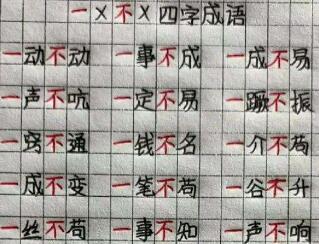 一X不X四字成语
一动不动 一事不成 一成不易
一声不吭 一定不易 一蹶不振
一窍不通 一钱不名 一介不苟
一成不变 一笔不苟 一谷不升
一丝不苟 一事不知 一声不响